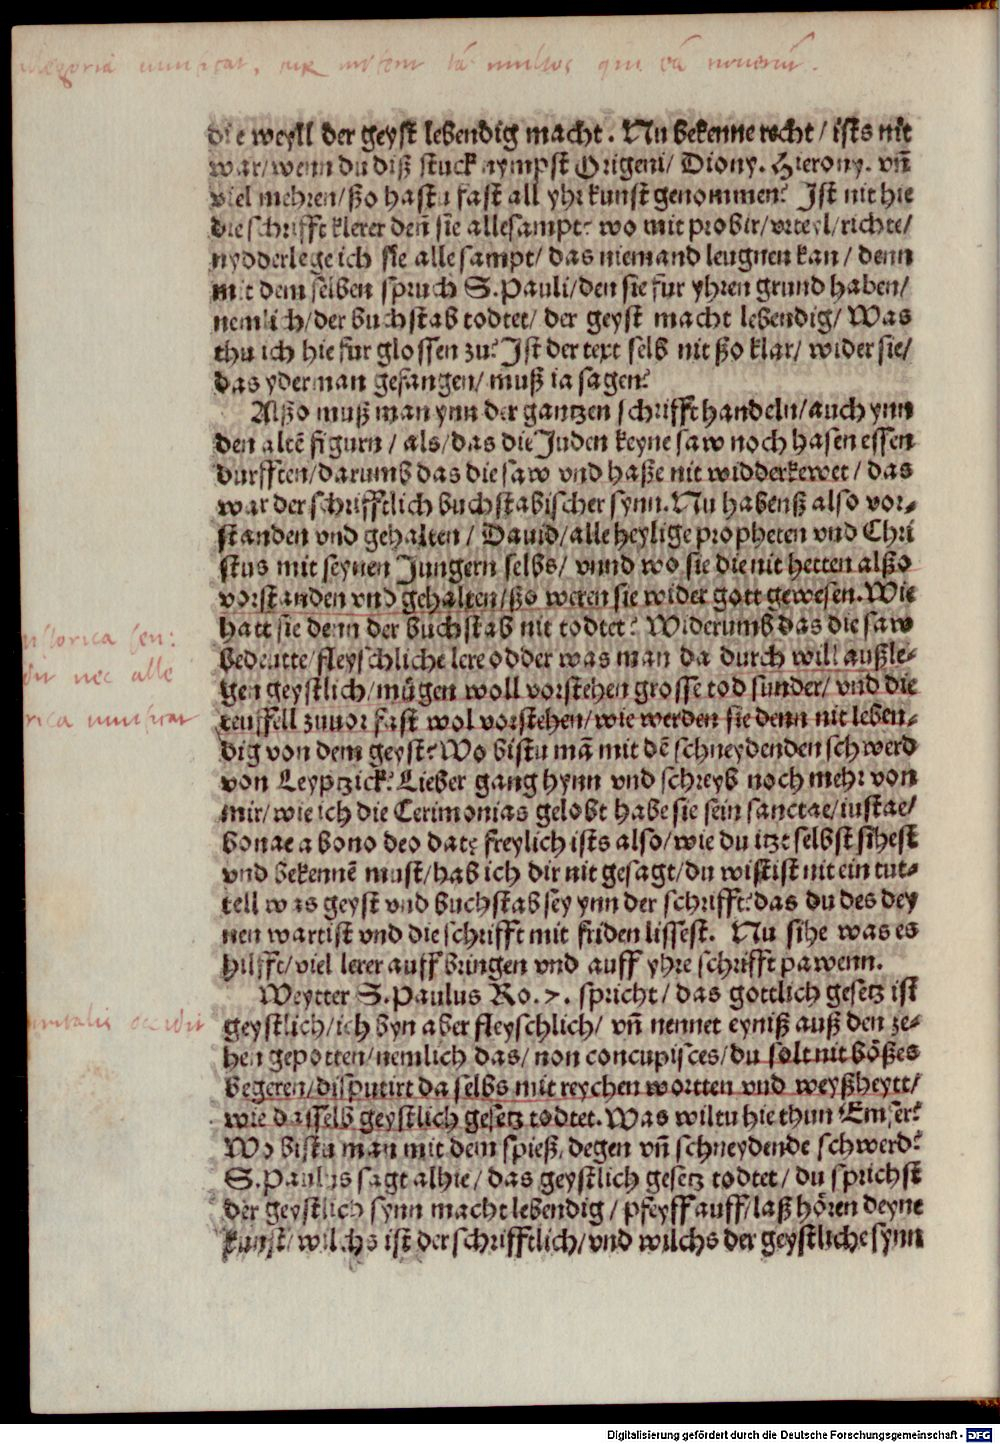 allegoria viuificat,
die weyll der geyst lebendig macht. Nu bekenne recht/ ists nit
war/ wenn du diß stuck nympst Origeni/ Diony. Hierony. vn̄
viel mehren/ ßo hastu fast all yhr kunst genommen? Ist nit hie
die schrifft klerer den̄ sie allesampt? wo mit probir/ vrteyl/ richte/
nydderlege ich sie alle sampt/ das niemand leugnen kan/ denn
mit dem selben spruch S. Pauli/ den sie fur yhren grund haben/
nemlich/ der buchstab todtet/ der geyst macht lebendig/ Was
thu ich hie fur glossen zu? Ist der text selb nit ßo klar/ wider sie/
das yderman gefangen/ muß ia sagen?
Alßo muß man ynn der gantzen schrifft handeln/ auch ynn
den altē figurn / als/ das die Juden keyne saw noch hasen essen
durfften/ darumb das die saw vnd haße nit widderkewet/ das
war der schrifftlich buchstabischer synn. Nu habenß also vor⸗
standen vnd gehalten / Dauid/ alle heylige propheten vnd Chri
stus mit seynen Jungern selbs/ vnnd wo sie die nit hetten alßo
vorstanden vnd gehalten/ ßo weren sie wider gott gewesen. Wie
hatt sie denn der buchstab nit todtet? Widerumb das die saw
bedeutte/ fleyschliche lere odder was man da durch will außle⸗
gen geystlich/ mügen woll vorstehen grosse tod sunder/ vnd die
teuffell zuuor fast wol vorstehen/ wie werden sie denn nit leben⸗
dig von dem geyst? Wo bistu mā mit dē schneydenden schwerd
von Leyptzick? Lieber gang hynn vnd schreyb noch mehr von
mir/ wie ich die Cerimonias gelobt habe sie sein sanctae/ iustae/
bonae a bono deo date freylich ists also/ wie du itzt selbst sihest
vnd bekennē must/ hab ich dir nit gesagt/ du wistist nit ein tut⸗
tell was geyst vnd buchstab sey ynn der schrifft? das du des dey
nen wartist vnd die schrifft mit friden lissest. Nu sihe was es
hilfft/ viel lerer auff bringen vnd auff yhre schrifft pawenn.
Weytter S. Paulus Ro. 7. spricht/ das gottlich gesetz ist
geystlich/ ich byn aber fleyschlich/ vn̄ nennet eyniß auß den ze⸗
hen gepotten/ nemlich das/ non concupisces/ du solt nit bößes
begeren/ disputirt da selbs mit reychen wortten vnd weyßheytt/
wie dasselb geystlich gesetz todtet. Was wiltu hie thun Emser?
Wo bistu man mit dem spieß, degen vn̄ schneydende schwerd?
S. Paulus sagt alhie/ das geystlich gesetz todtet/ du sprichst
der geystlich synn macht lebendig / pfeyff auff/ laß hören deyne
kunst/ wilchs ist der schrifftlich/ vnd wilchs der geystliche synn
nec alle
rica viuificat
occidit
Digitalisierung gefördert durch die Deutsche Forschungsgemeinschaft - DFG